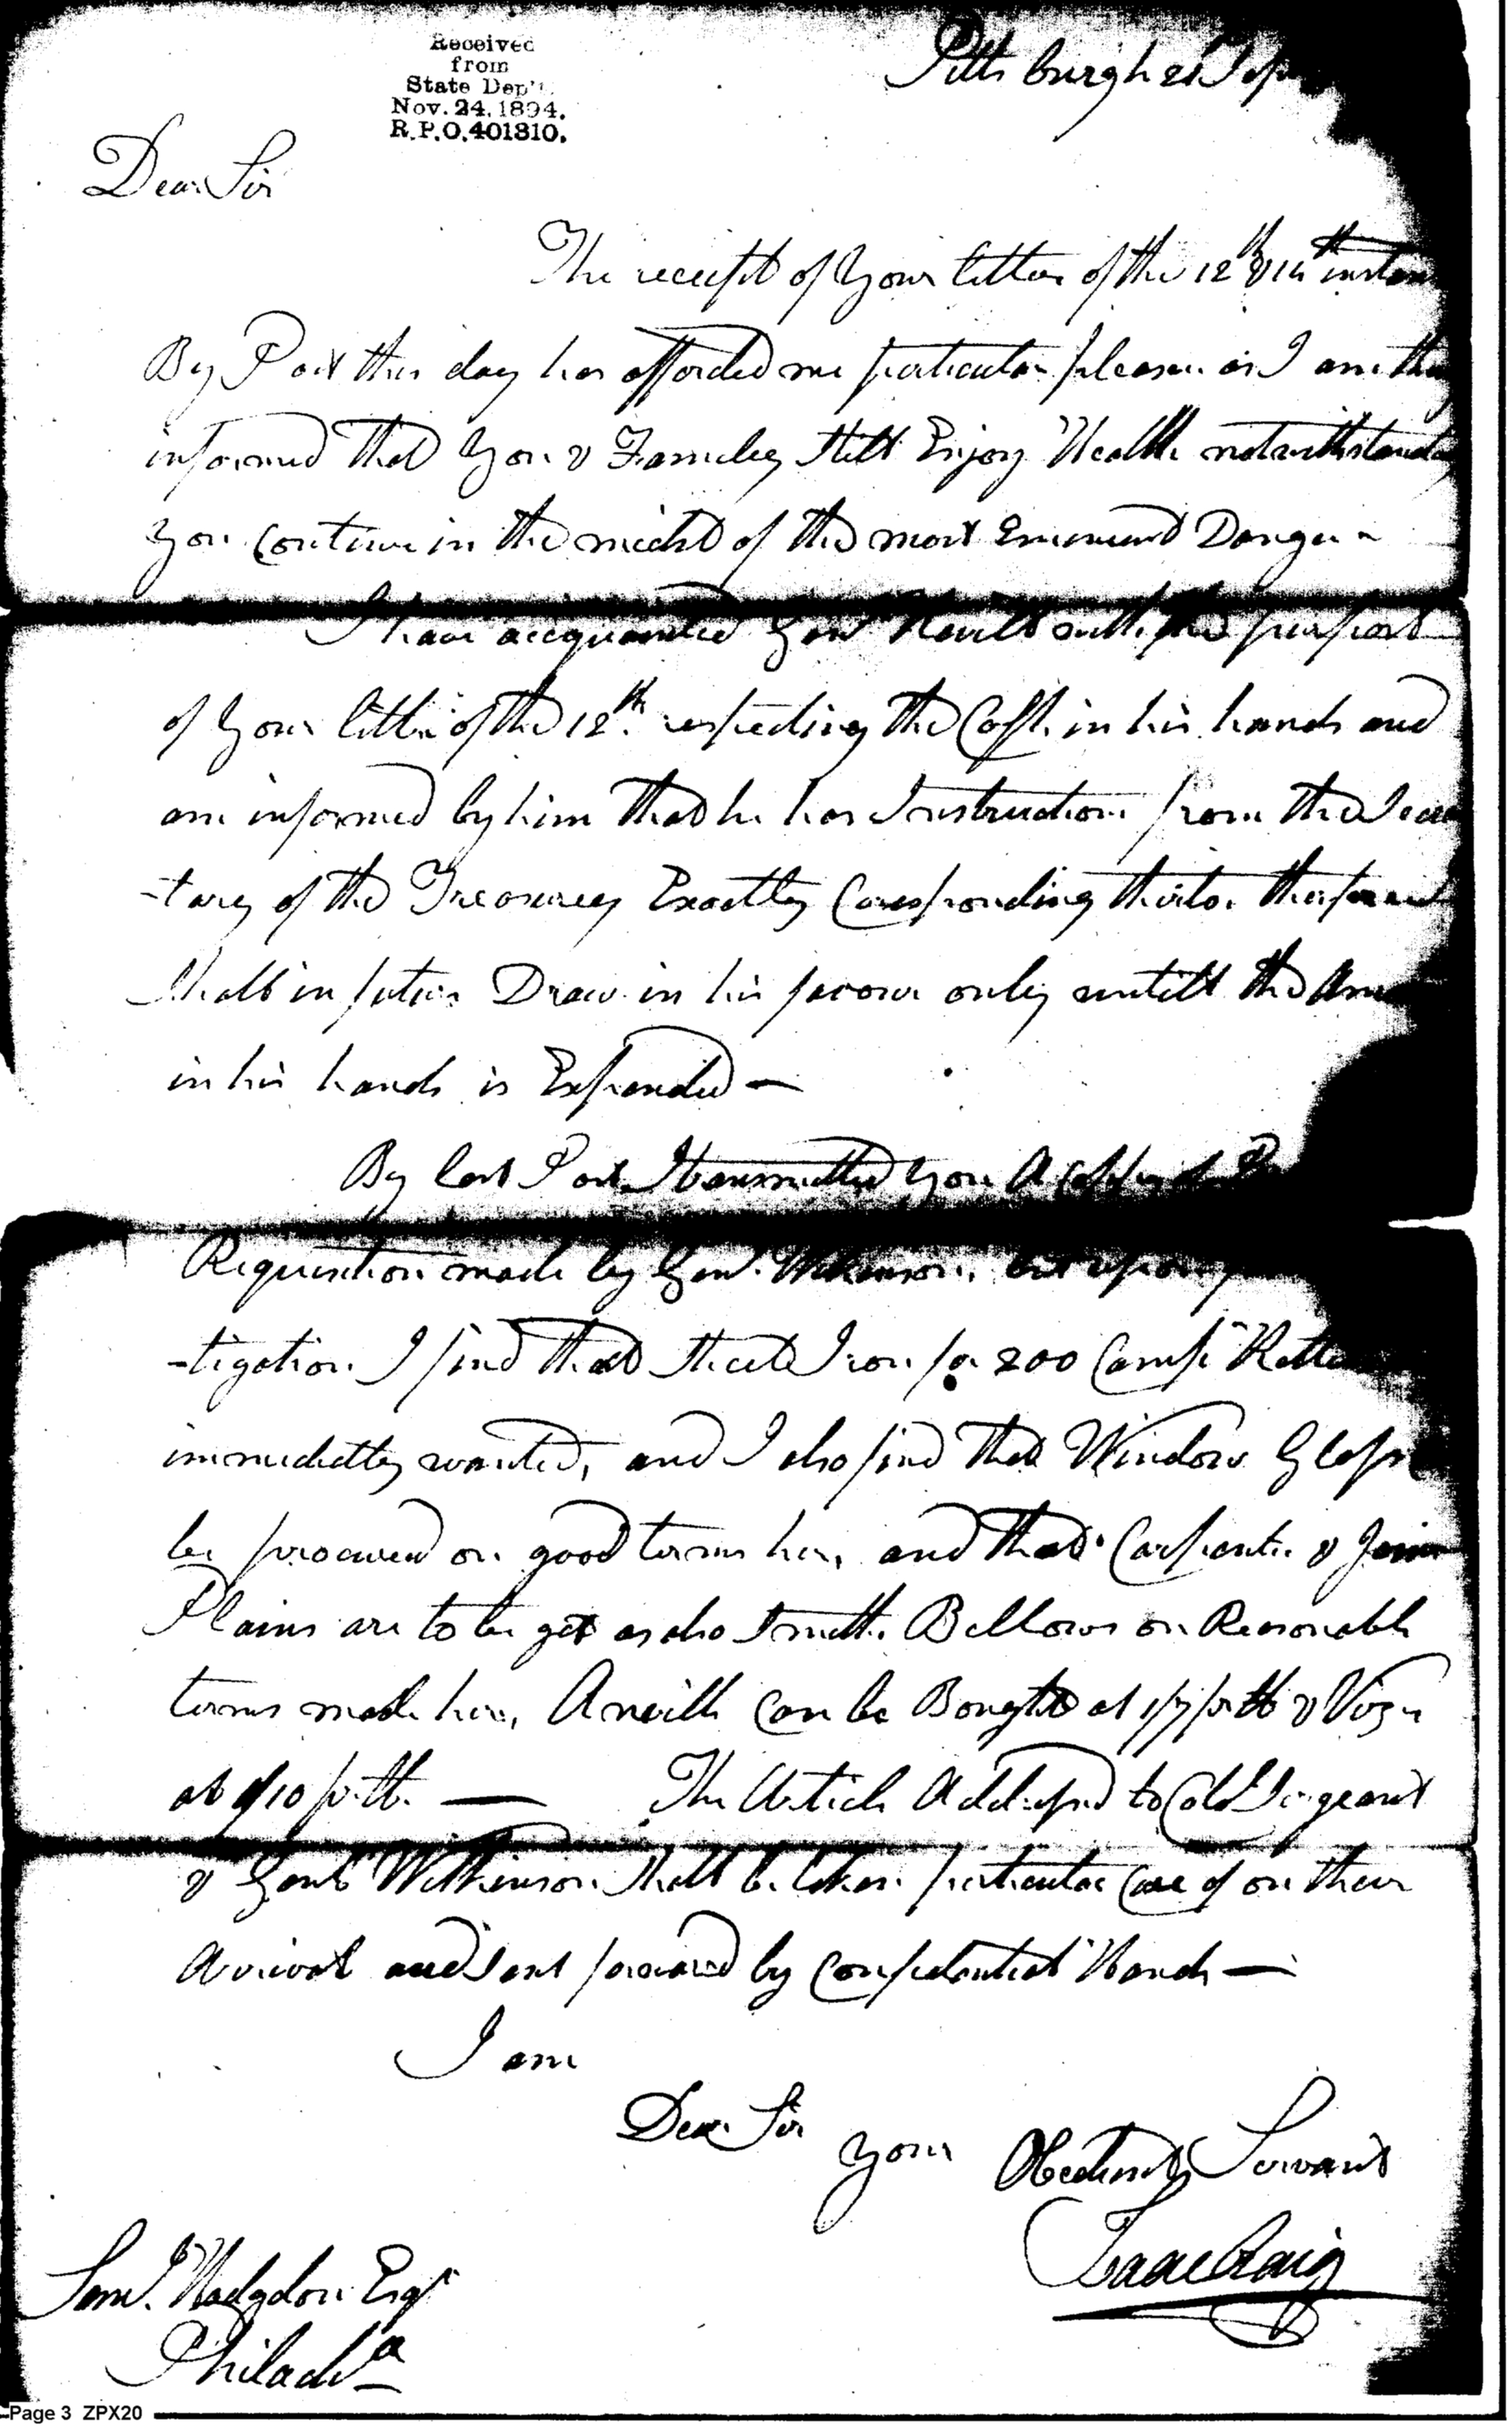 Received
from
State Dep't.
Nov. 24. 1894.
R.P.O. 401310.
Pittsburgh 21 Sep
Dear Sir
The receipt of your letters of the 12th & 14th instan
By Post this day has afforded me particular pleasure as I am
informed that you & Family still Enjoy Health notwithstand
you continue in the midst of the most Emenent Danger -
I have acequanted Genl. Nevill with the purport
of your letter of the 12th. respecting the Cash in his hands and
am informed by him that he has Instructions from the Secre
-tary of the Treasurey Exactly Coresponding thereto. therefore
shall in future Draw in his favour only untill the Amo
in his hands is Expended —
By last Post I transmitted you A
Requisition made by Genl. Wilkinson. but upon
-tigation I find that sheet Iron for 200 Camp Kettle
immediatly wanted, and I also find that Window Glass
be procured on good terms here, and that Carpenter & Joiner
Plains are to be got as also Smith Bellows on Reasonable
terms made here, Anvills Can be Bought at 1/7 pr lb & Vizes
at 1/10 pr lb. — The Articles Addressed to Colo. Sergeant
& Genl. Wilkinson shall be taken particular Care of on their
Arrival and sent forward by Confidential Hands —
I am
Dear Sir
your Obedient Servant
Isaac Craig
Saml. Hodgdon Esqr.
Philada
Page 3 ZPX20